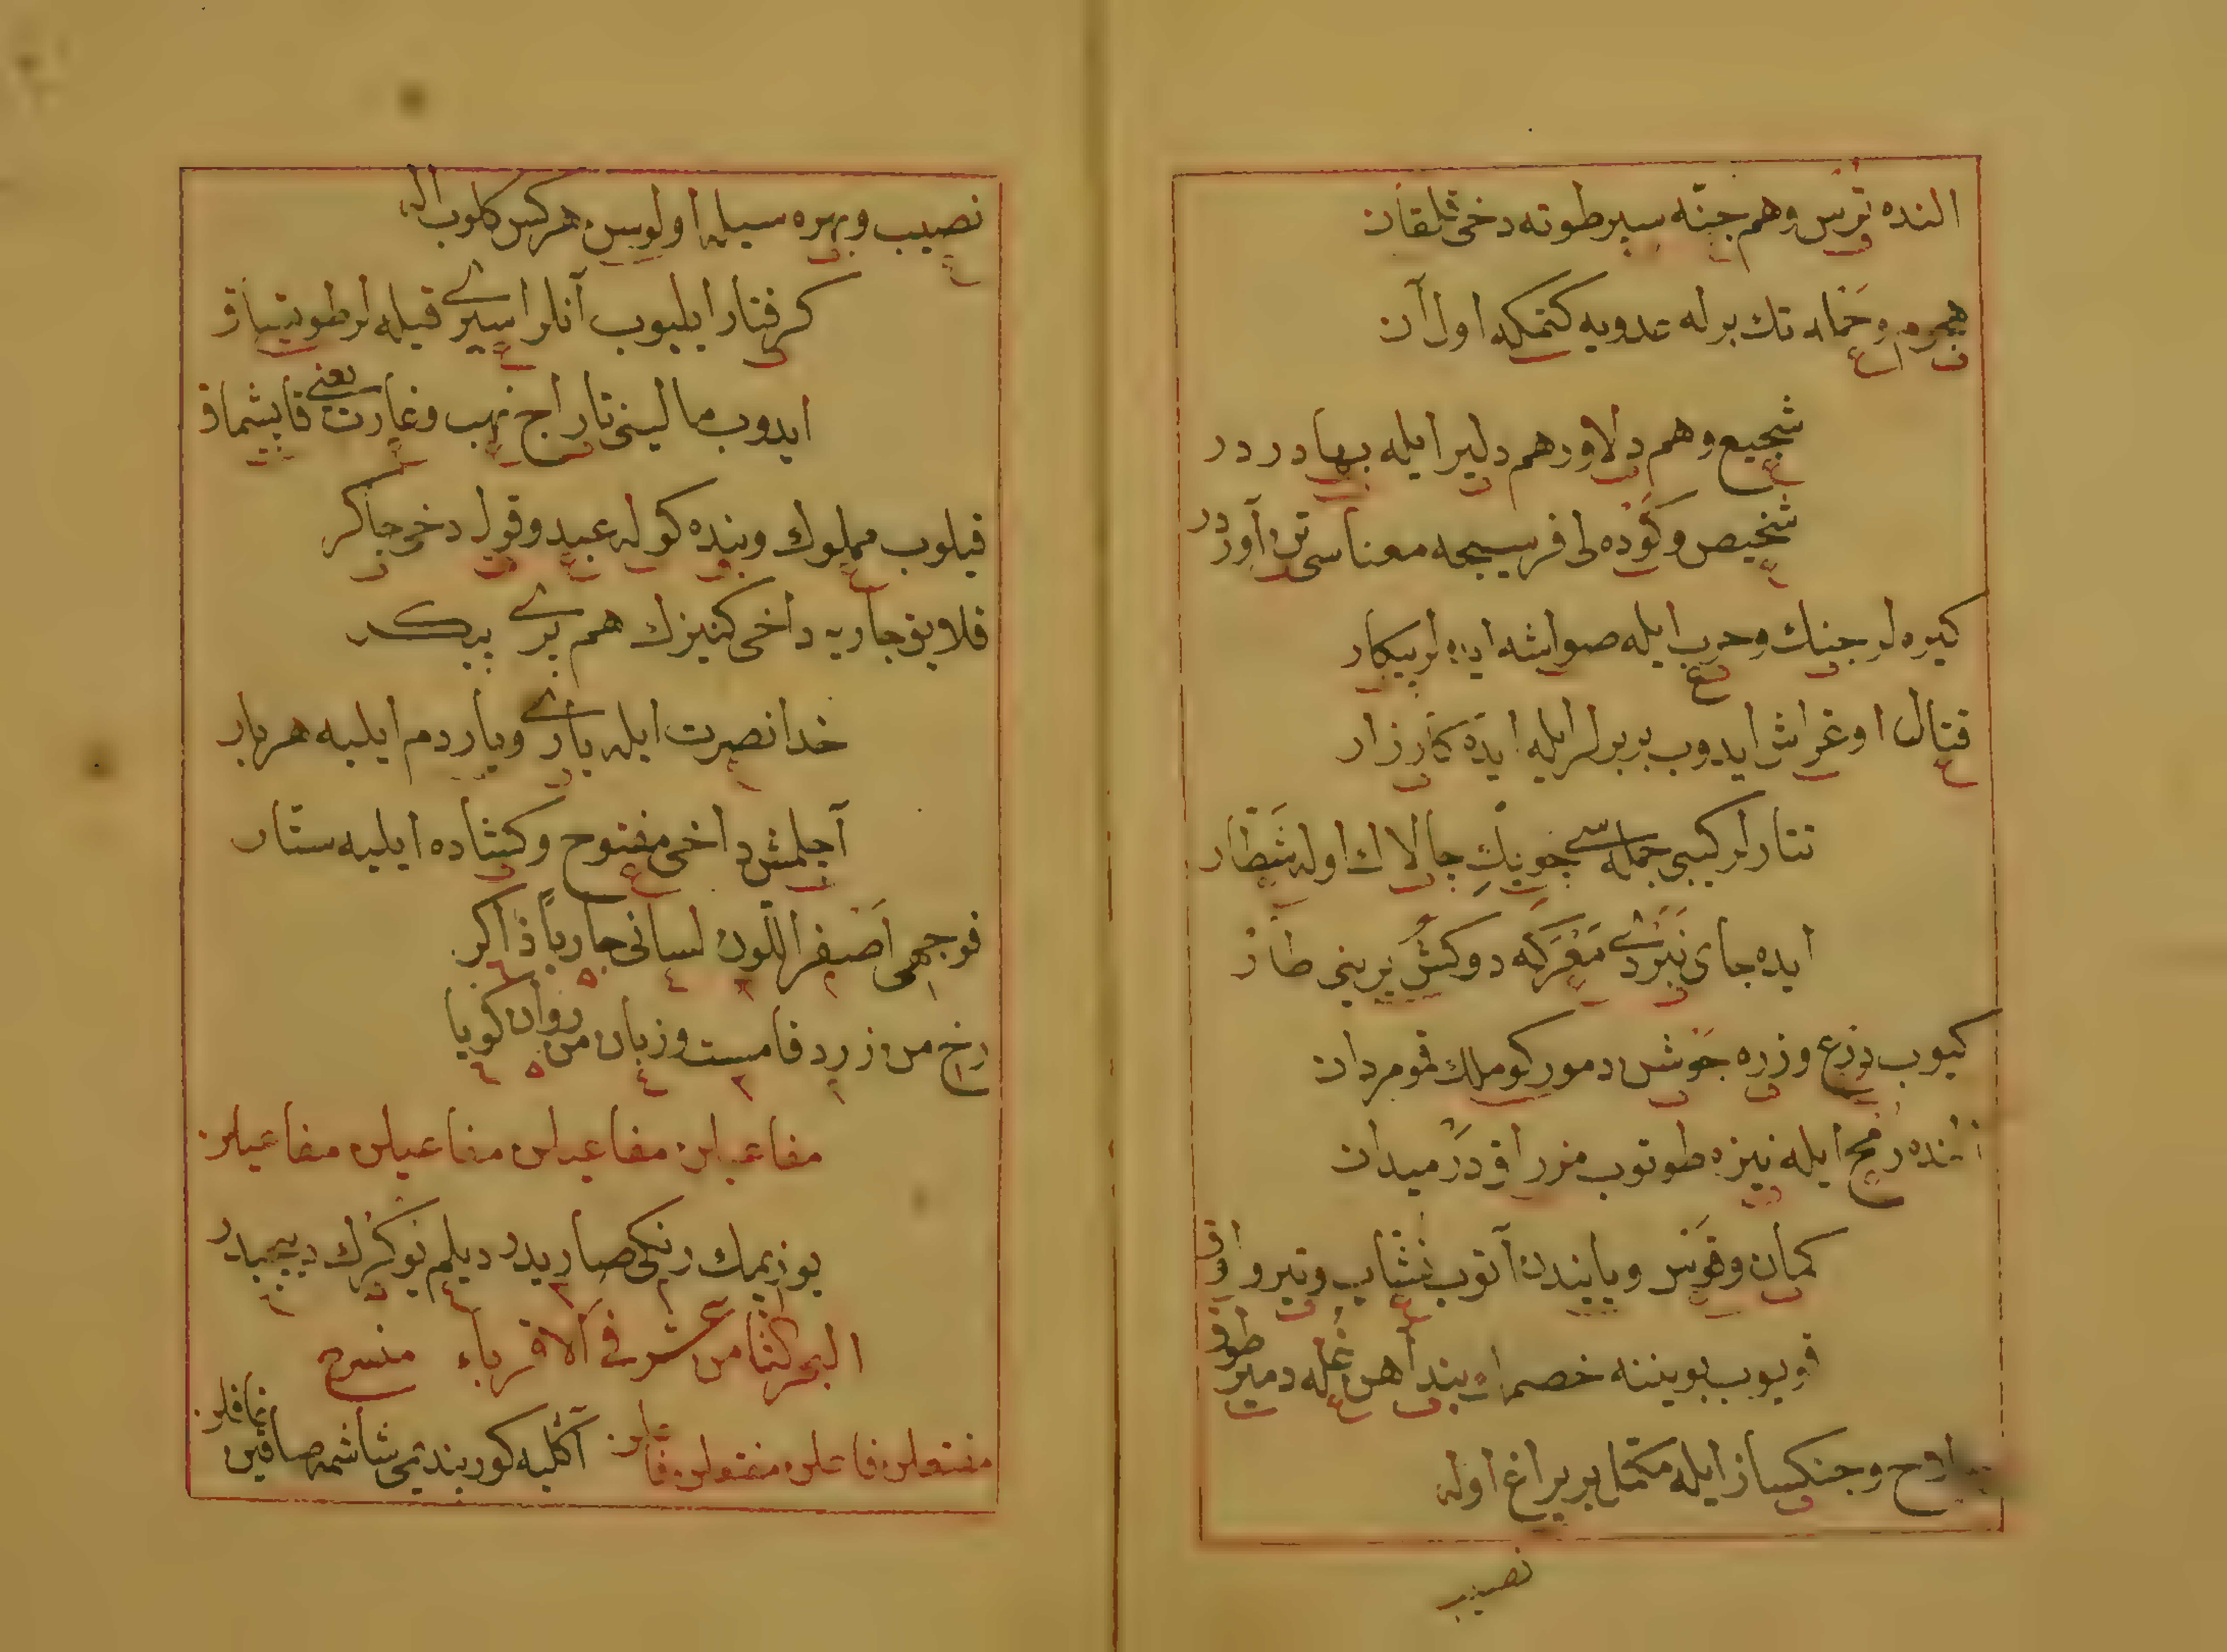 النده ترس وهم جنّه سپر طوته دخی قلقان
هجوم و حمله تك بر له عدويه كتمكه اول آن
شجيع وهم دلاور هم دلير ايله بهادر در
شخيص وكوده لی فربيجه معناسی تن آور در
كيره لر جنك وحرب ايله صواشه ايده لر پيكار
قتال اوغراش ايدوب بربرلر ايله ايده كارزار
تتارلر كيبی جمله سی چوپك چالاك اوله شطار
ايده جای نبردی معركه دوكش يرينی طار
كيوب درع وزره جوشن دمور كوملك قمو مردان
النده رمح ايله نيزه طوتوب مزراق در ميدان
كمان وقوس ويايندن آتوب نشاب وتير واوق
قويوب بويننه خصمك اويند آهن غله دمير طوق
سلاح وجنك ساز ايله مكمل بر يراغ اوله
نصيب
نصيب وبهره سيله اولوبس هركس كلوب اله
كرفتار ايليوب آنلر اسيری قيله لر طوتساق
ايدوب مالينی تاراج نهب وغارت يعنی قاپشماق
قيلوب مملوك وبنده كوله عبد وقول دخی چاكر
قلايق جاريه داخی كنيزك هم پری پيكر
خدا نصرت ايله ياری وياردم ايليه هر بار
آچلمش داخی مفتوح وكشاده ايليه ستار
فوجهی اصفر اللون لسانی جاريا ذاكر
رخ من زرد فامست وزبان من روان كويا
مفاعيلن مفاعيلن مفاعيلن مفاعيلن
يوزيمك رنكی صاريدر ديلم
البحر الثامن عشر فی الاقرباء منسرح
مفتعلن فاعلن مفتعلن فاعلن آكليه كور بندمی شاشمه صاقين